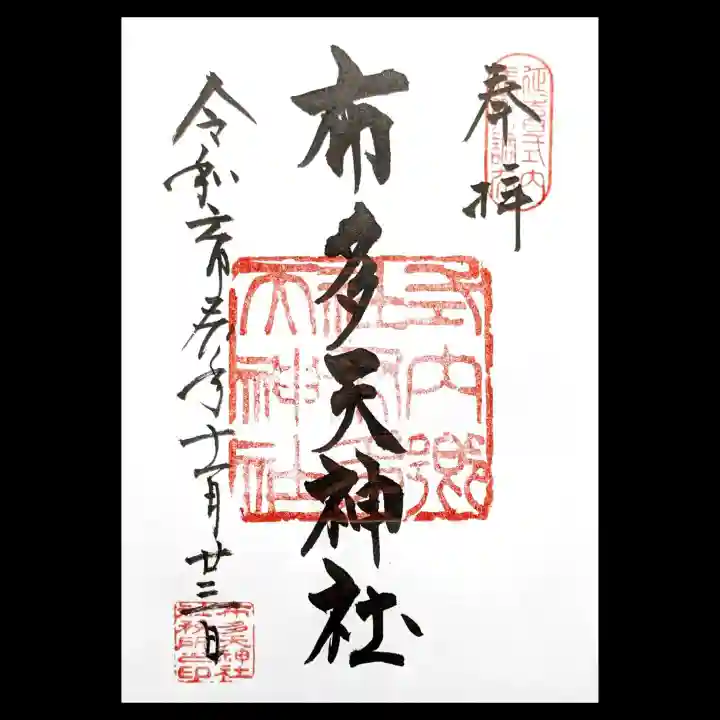 延喜式内
奉拝
式内郷
社布多
天神社
布多天神社
令和六甲辰年十一月廿三日
布多天神社
社務所之印